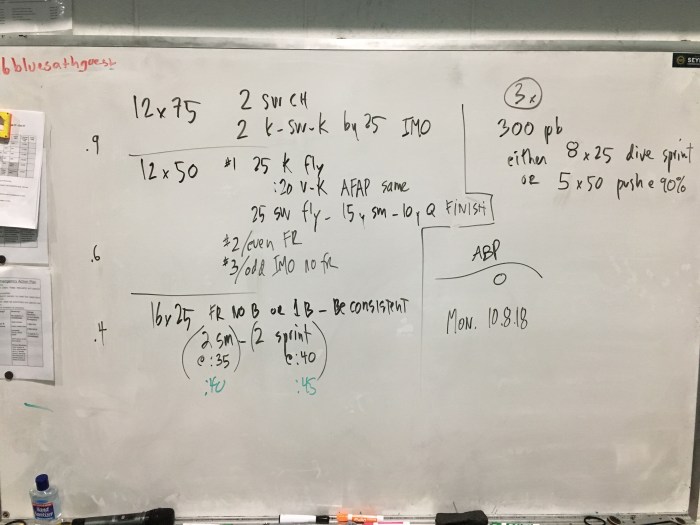 12 x 75 2 sw CH
2 K-sw-K by 25 IMO
.9
12 x 50 #1 25 K fly
:20 V-K AFAP same
25 sw fly - 15y sm - 10y Q FINISH
#2/even FR
.6
#3/odd IMO no fr
16 x 25 FR NO B OR 1B - Be consistent
.4
(2 sm) - (2 sprint)
@ :35 @ :40
:40 :45
3x
300 pb
either 8 x 25 dive sprint
OR 5 x 50 push @ 90%
ABP
Mon. 10.8.18